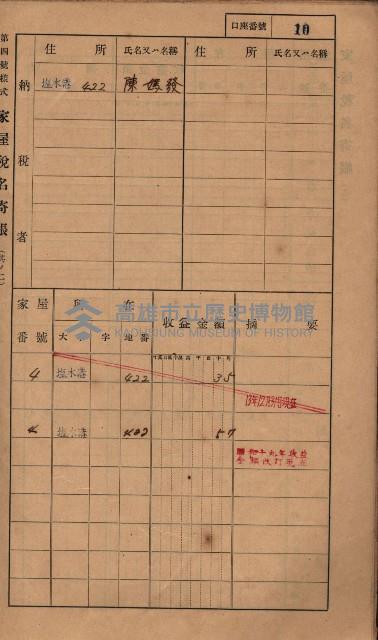 第四號樣式 家屋稅名寄帳
口座番號 10
納稅者
住所 氏名又ハ名稱 住所 氏名又ハ名稱
塩水港 422 陳媽發
家屋番號 所在 收益金額 摘要
大字 地番
高雄市立歷史博物館
KAOHSIUNG MUSEUM OF HISTORY
4 塩水港 422 35
4 塩水港 422 57
昭和十九年收益
金額改訂現在